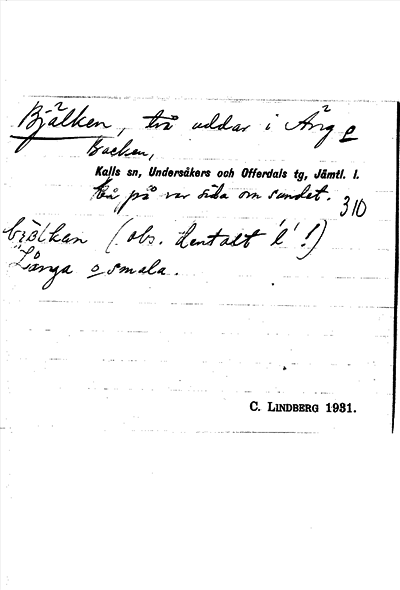 Bjälken, två uddar i Äng o
Backen,
Kalls sn, Undersåkers och Offerdals tg, Jämtl. l.
på var sida om sundet.
310
(obs. dentalt 'l' !)
Långa o smala.
C. LINDBERG 1931.